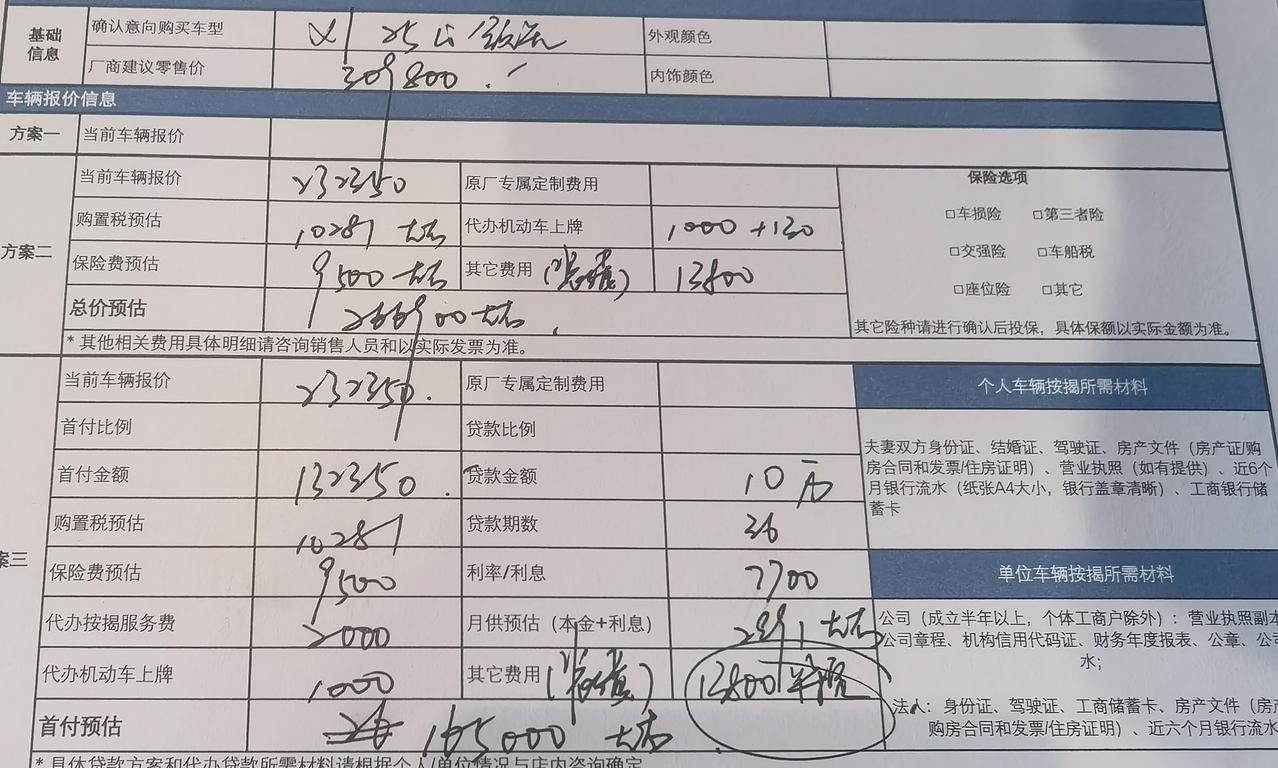 基础信息 确认意向购买车型 X1 25Li 外观颜色
厂商建议零售价 309800. 内饰颜色
车辆报价信息
方案一 当前车辆报价
方案二 当前车辆报价 232350 原厂专属定制费用 保险选项
购置税预估 10287 左右 代办机动车上牌 1000 +130 □车损险 □第三者险
保险费预估 9500 左右 其它费用 13800 □交强险 □车船税
总价预估 266900左右. □座位险 □其它
其它险种请进行确认后投保，具体保额以实际金额为准。
* 其他相关费用具体明细请咨询销售人员和以实际发票为准。
案三 当前车辆报价 232350. 原厂专属定制费用 个人车辆按揭所需材料
首付比例 贷款比例
夫妻双方身份证、结婚证、驾驶证、房产文件（房产证/购
房合同和发票/住房证明）、营业执照（如有提供）、近6个
月银行流水（纸张A4大小，银行盖章清晰）、工商银行储
蓄卡
首付金额 132350. 贷款金额 10万
购置税预估 10287 贷款期数 36
保险费预估 9500 利率/利息 7700 单位车辆按揭所需材料
代办按揭服务费 2000 月供预估（本金+利息） 2991 左右
公司（成立半年以上，个体工商户除外）：营业执照副本
公司章程、机构信用代码证、财务年度报表、公章、公
水；
代办机动车上牌 1000 其它费用 13800
法人：身份证、驾驶证、工商储蓄卡、房产文件（房产
购房合同和发票/住房证明）、近六个月银行流水
首付预估 165000 左右.
* 具体贷款方案和代办贷款所需材料请根据个人/单位情况与店内咨询确定